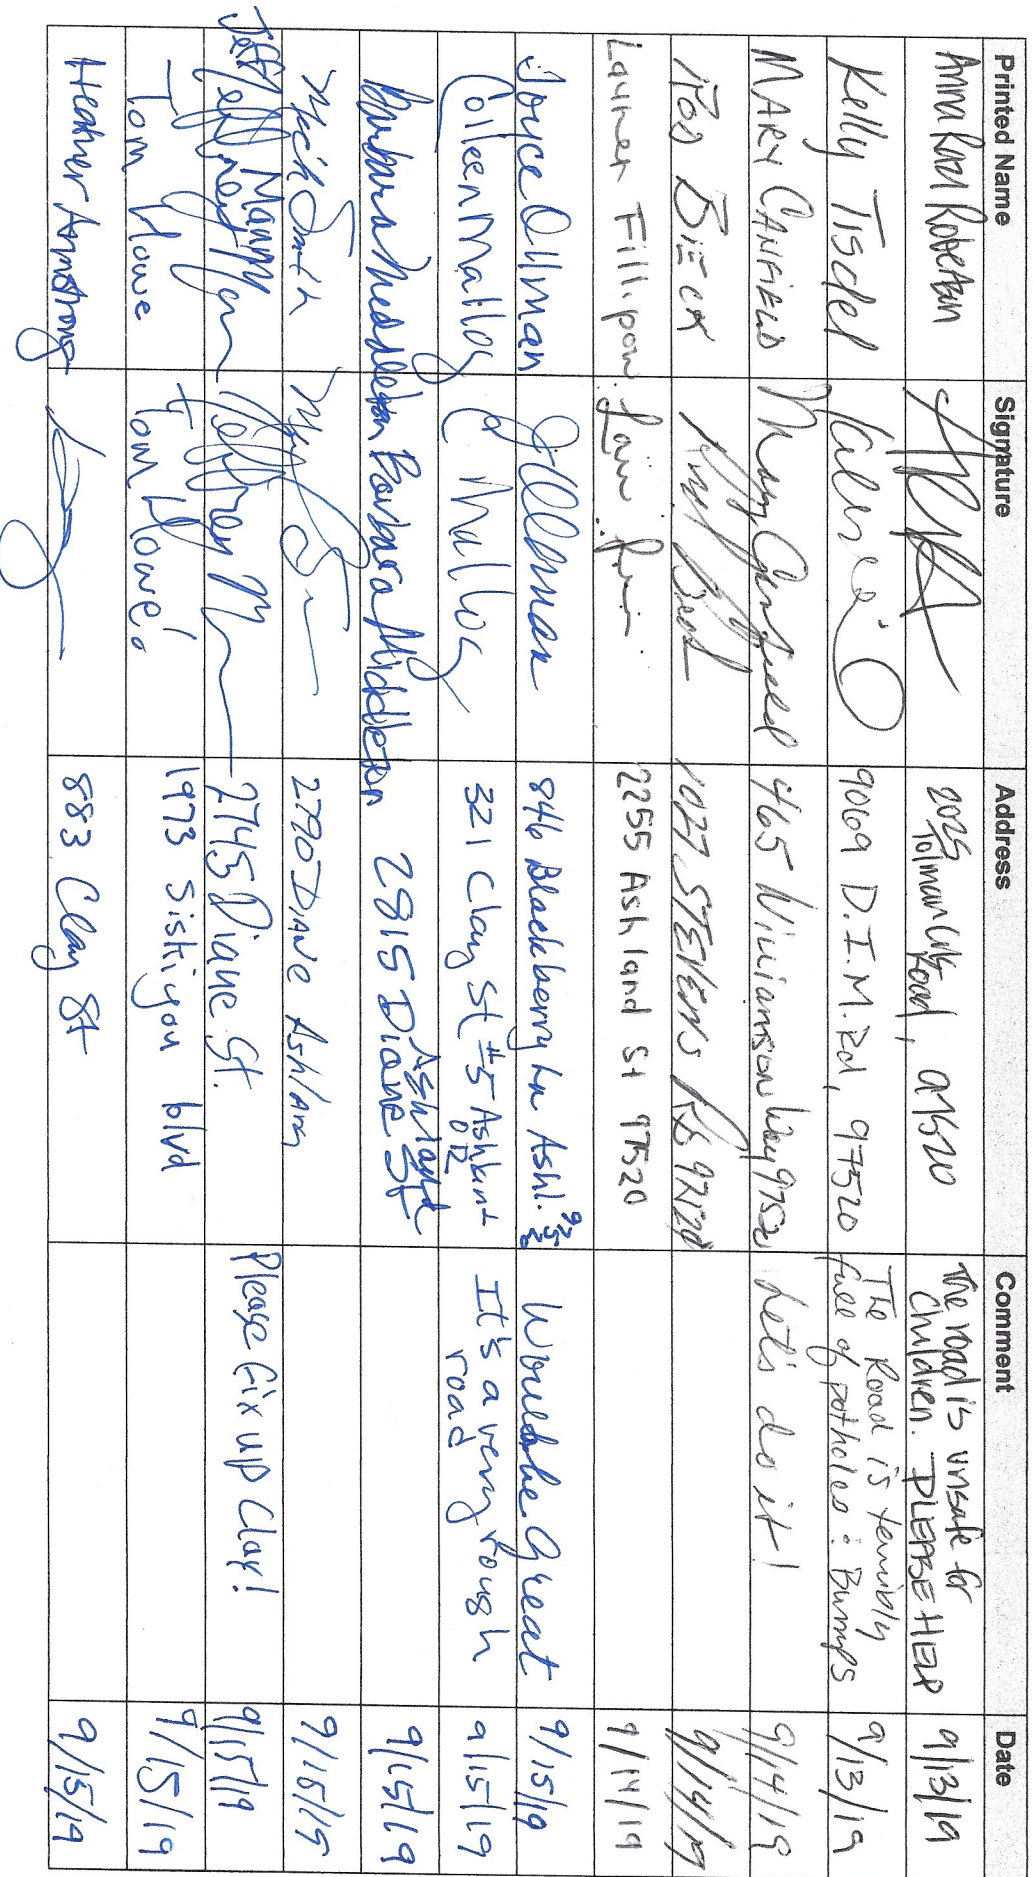 Printed Name Signature Address Comment Date
Anna Rose Robertson 2025 Tolman Crk Road, 97520 The road is unsafe for children. PLEASE HELP 9/13/19
Kelly Tisdel 9069 D.I.M. Rd, 97520 The Road is terribly full of potholes : Bumps 9/13/19
MARY CANFIELD Mary Canfield 465 Williamson Way 9752 Let's do it! 9/14/19
1027 STEVENS 9/14/19
2255 Ashland St 97520 9/14/19
Joyce Ollman JOllman 846 Blackberry Ln Ashl. Would be Great 9/15/19
Coileen Mallos C Mallos 321 Clay St #5 Ashland It's a very rough road 9/15/19
Barbara Middleton Barbara Middleton 2815 Diane St Ashland 9/15/19
Smith 2790 DIANE Ashland 9/15/19
Jeff Mann Jeffrey M 2745 Diane St. Please fix up Clay! 9/15/19
Tom Howe Tom Howe 1973 Siskiyou blvd 9/15/19
Heather Armstrong 883 Clay St 9/15/19